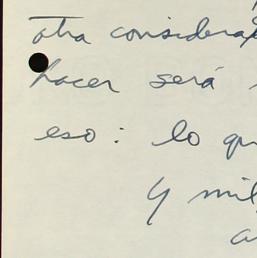 otra considera
hacer será
eso: lo qu
y mil
a